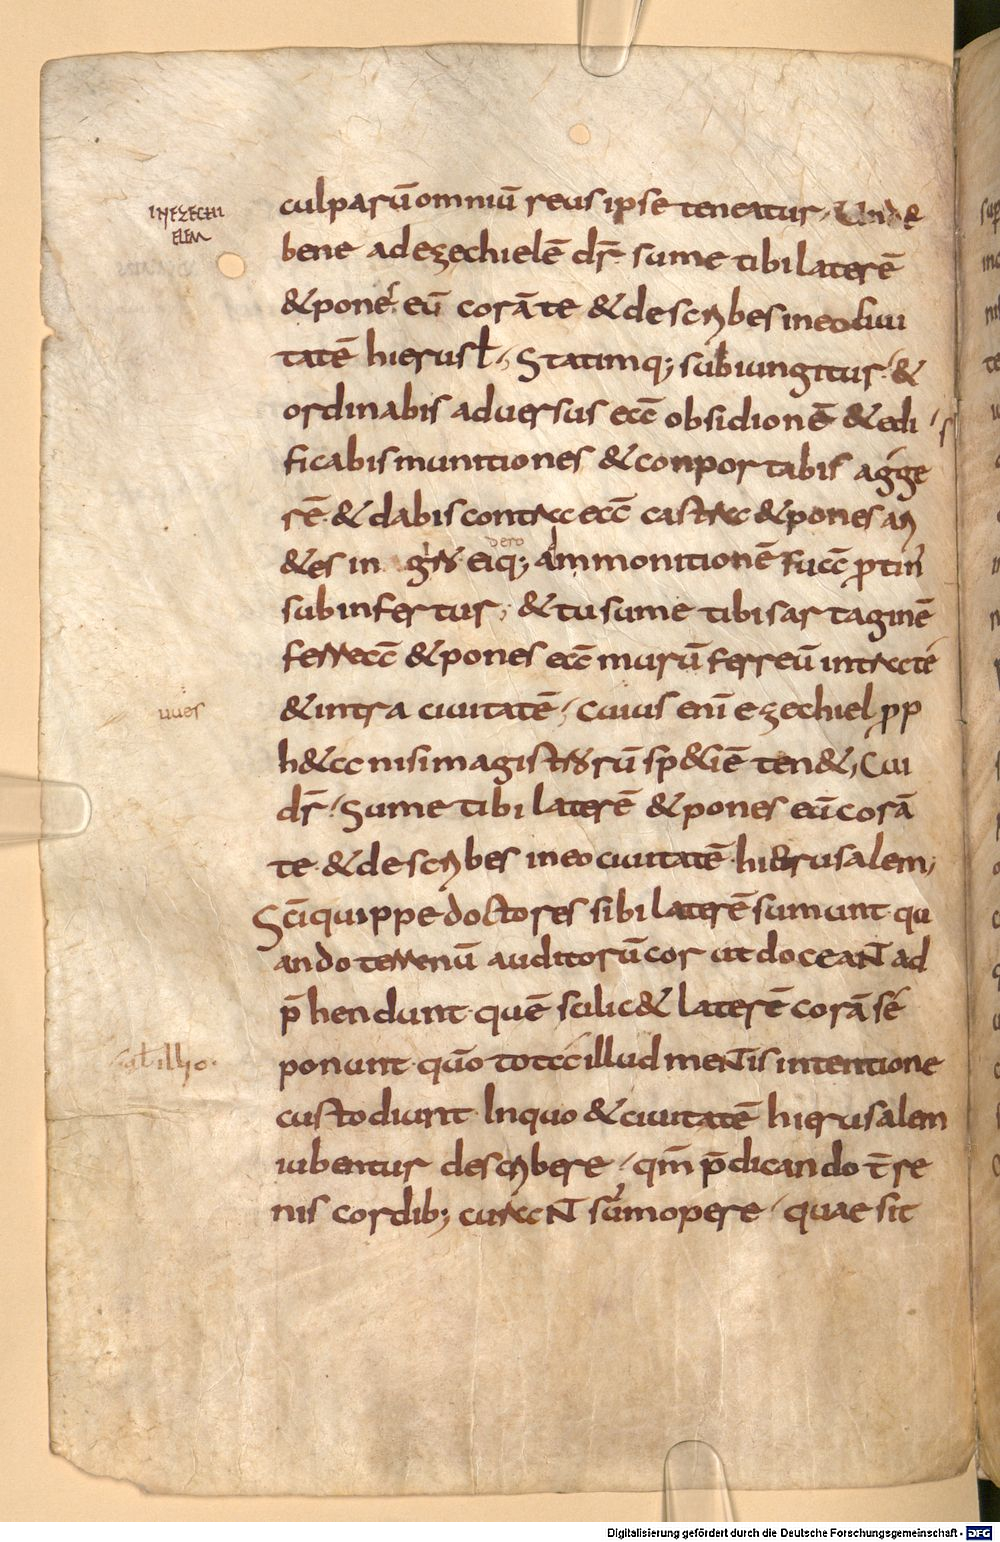 IN EZECHI
ELEM
culparū omniū reus ipse teneatur, Unde
bene ad ezechielē dr̄ sume tibi laterē
& pones eū corā te & describes in eo ciui
tatē hierusl̄, Statimq; subiungitur & 
ordinabis aduersus eā obsidionē & edi
ficabis munitiones & conportabis agge
rē & dabis contra eā castra & pones ari
&es in giro eiq; ad monitionē suā ꝓtin
sub infertur, & tu sume tibi sartaginē
ferreā & pones eā murū ferreū intra te
uues
& intra ciuitatē, Cuius eni ezechiel ꝓp
h&a nisi magistrorū spētiē ten&, Cui
dr̄, Sume tibi laterē & pones eū corā
te & describes in eo ciuitatē hierusalem,
Sc̄i quippe doctores sibi laterē sumunt qu
ando terrenū auditorū cor ut doceant ad
p̄hendunt quē scilic& laterē corā se
ponunt quō tota illud mentis intentione
custodiunt In quo & ciuitatē hierusalem
iubentur describere, qm̄ p̄dicando t̄re
nis cordib; curant summopere, quae sit
Digitalisierung gefördert durch die Deutsche Forschungsgemeinschaft - DFG